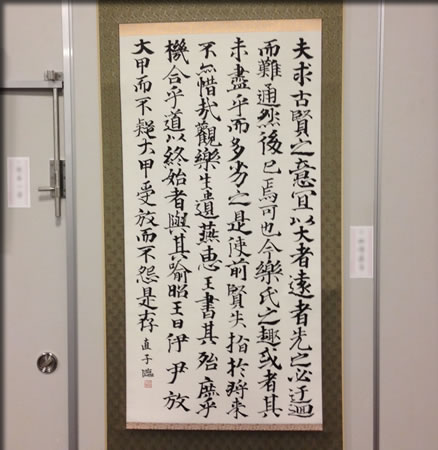 夫求古賢之意冝以大者遠者先之必迂迴
而難通然後已焉可也今樂氏之趣或者其
未盡乎而多劣之是使前賢失指於将來
不亦惜哉觀樂生遺燕惠王書其殆庶乎
機合乎道以終始者與其喻昭王曰伊尹放
大甲而不疑大甲受放而不怨是存 直子臨